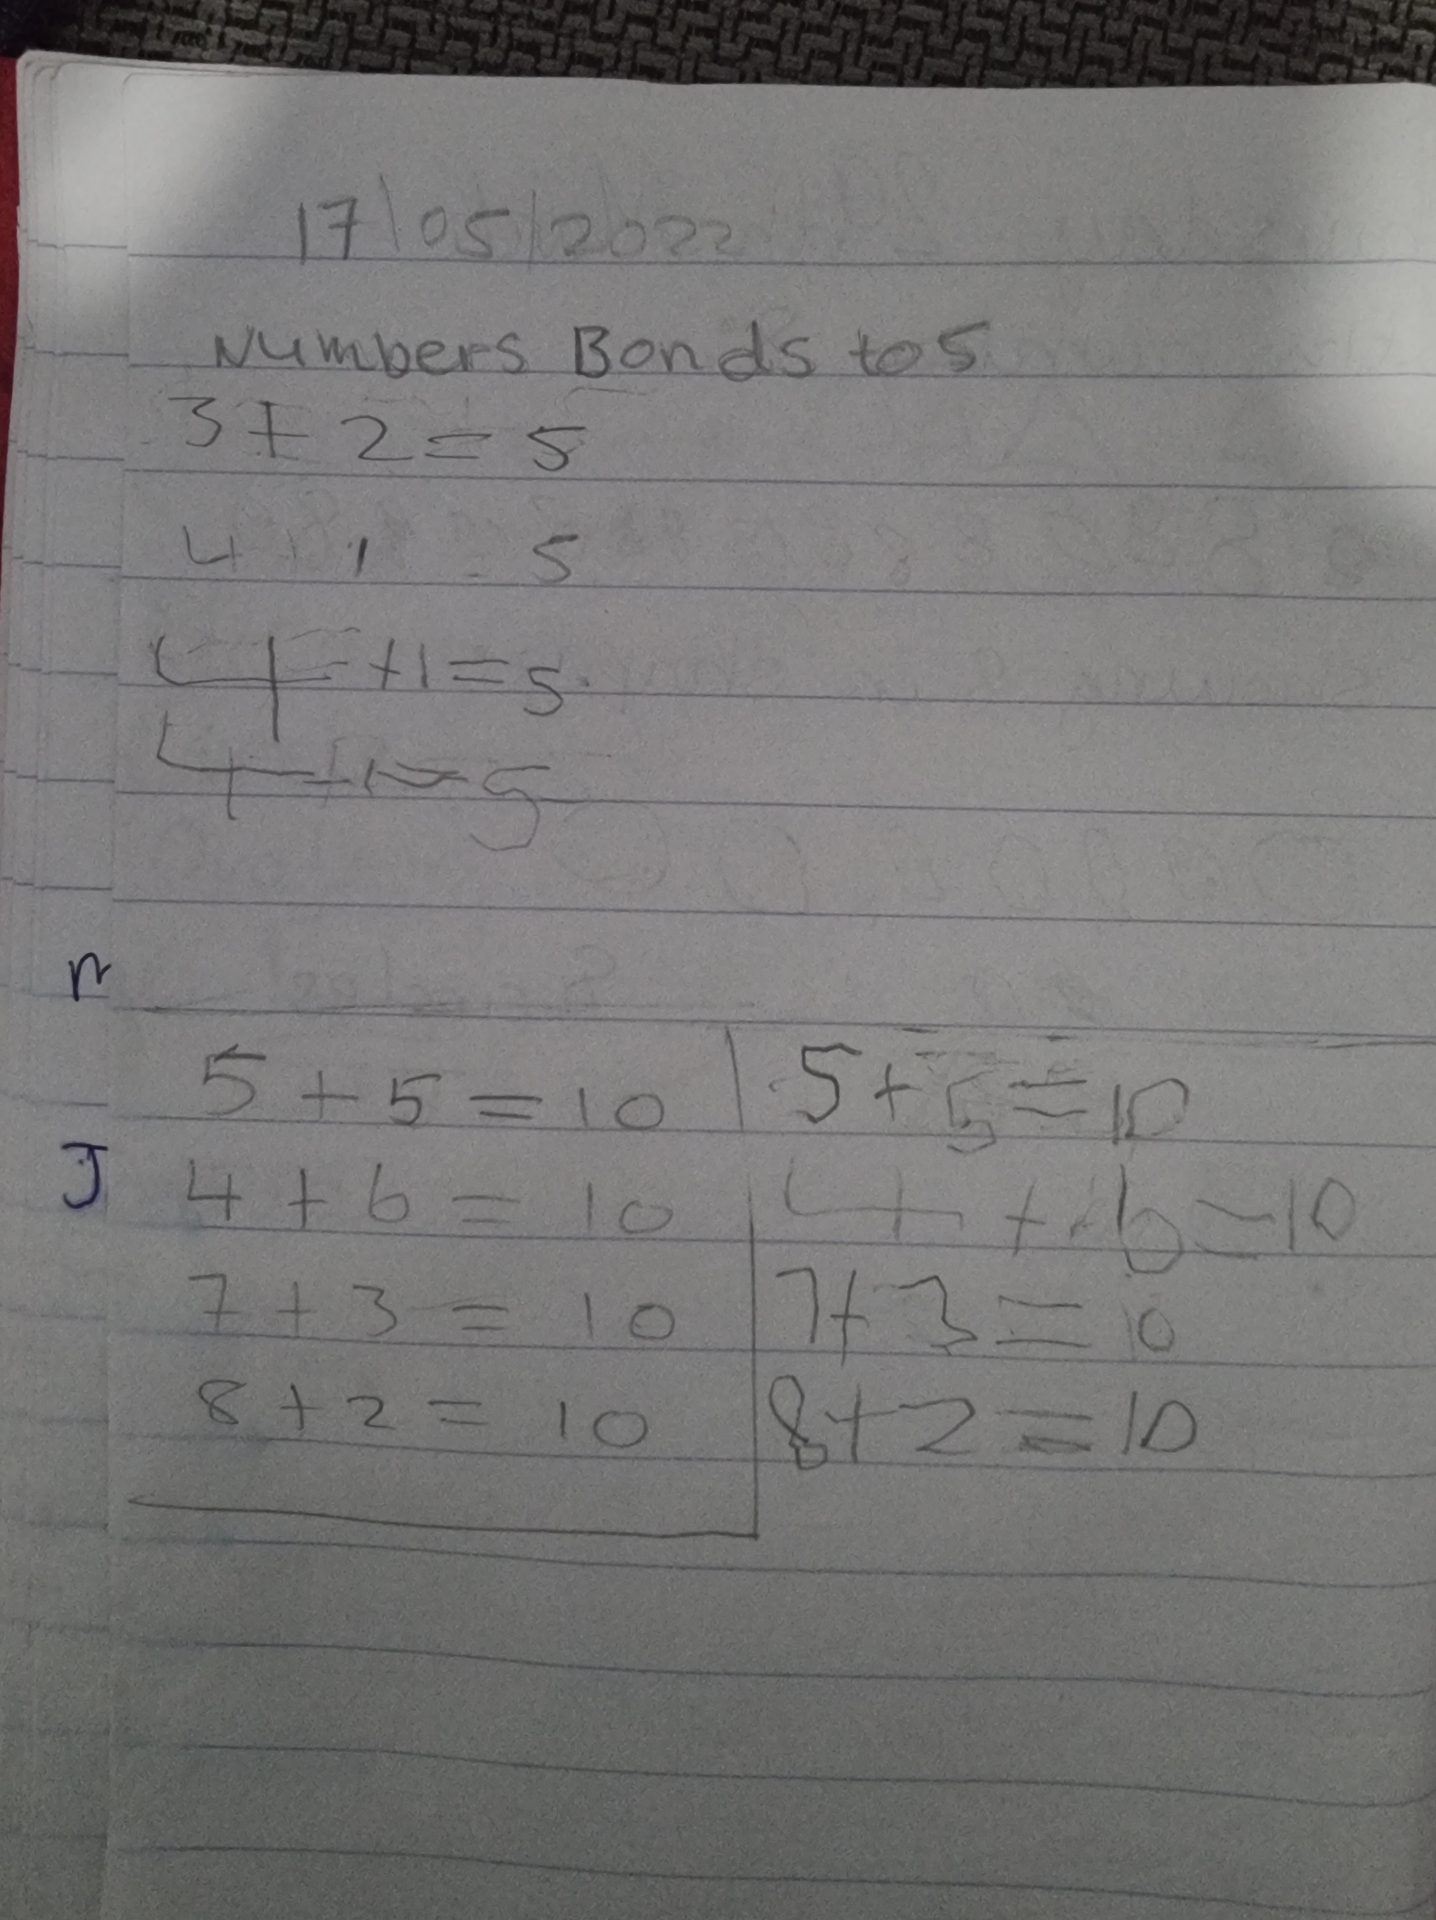 17/05/2022
Numbers Bonds to 5
3 + 2 = 5
4 + 1 = 5
4 + 1 = 5
4 + 1 = 5
n
5 + 5 = 10 | 5 + 5 = 10
J 4 + 6 = 10 | 4 + 6 = 10
7 + 3 = 10 | 7 + 3 = 10
8 + 2 = 10 | 8 + 2 = 10